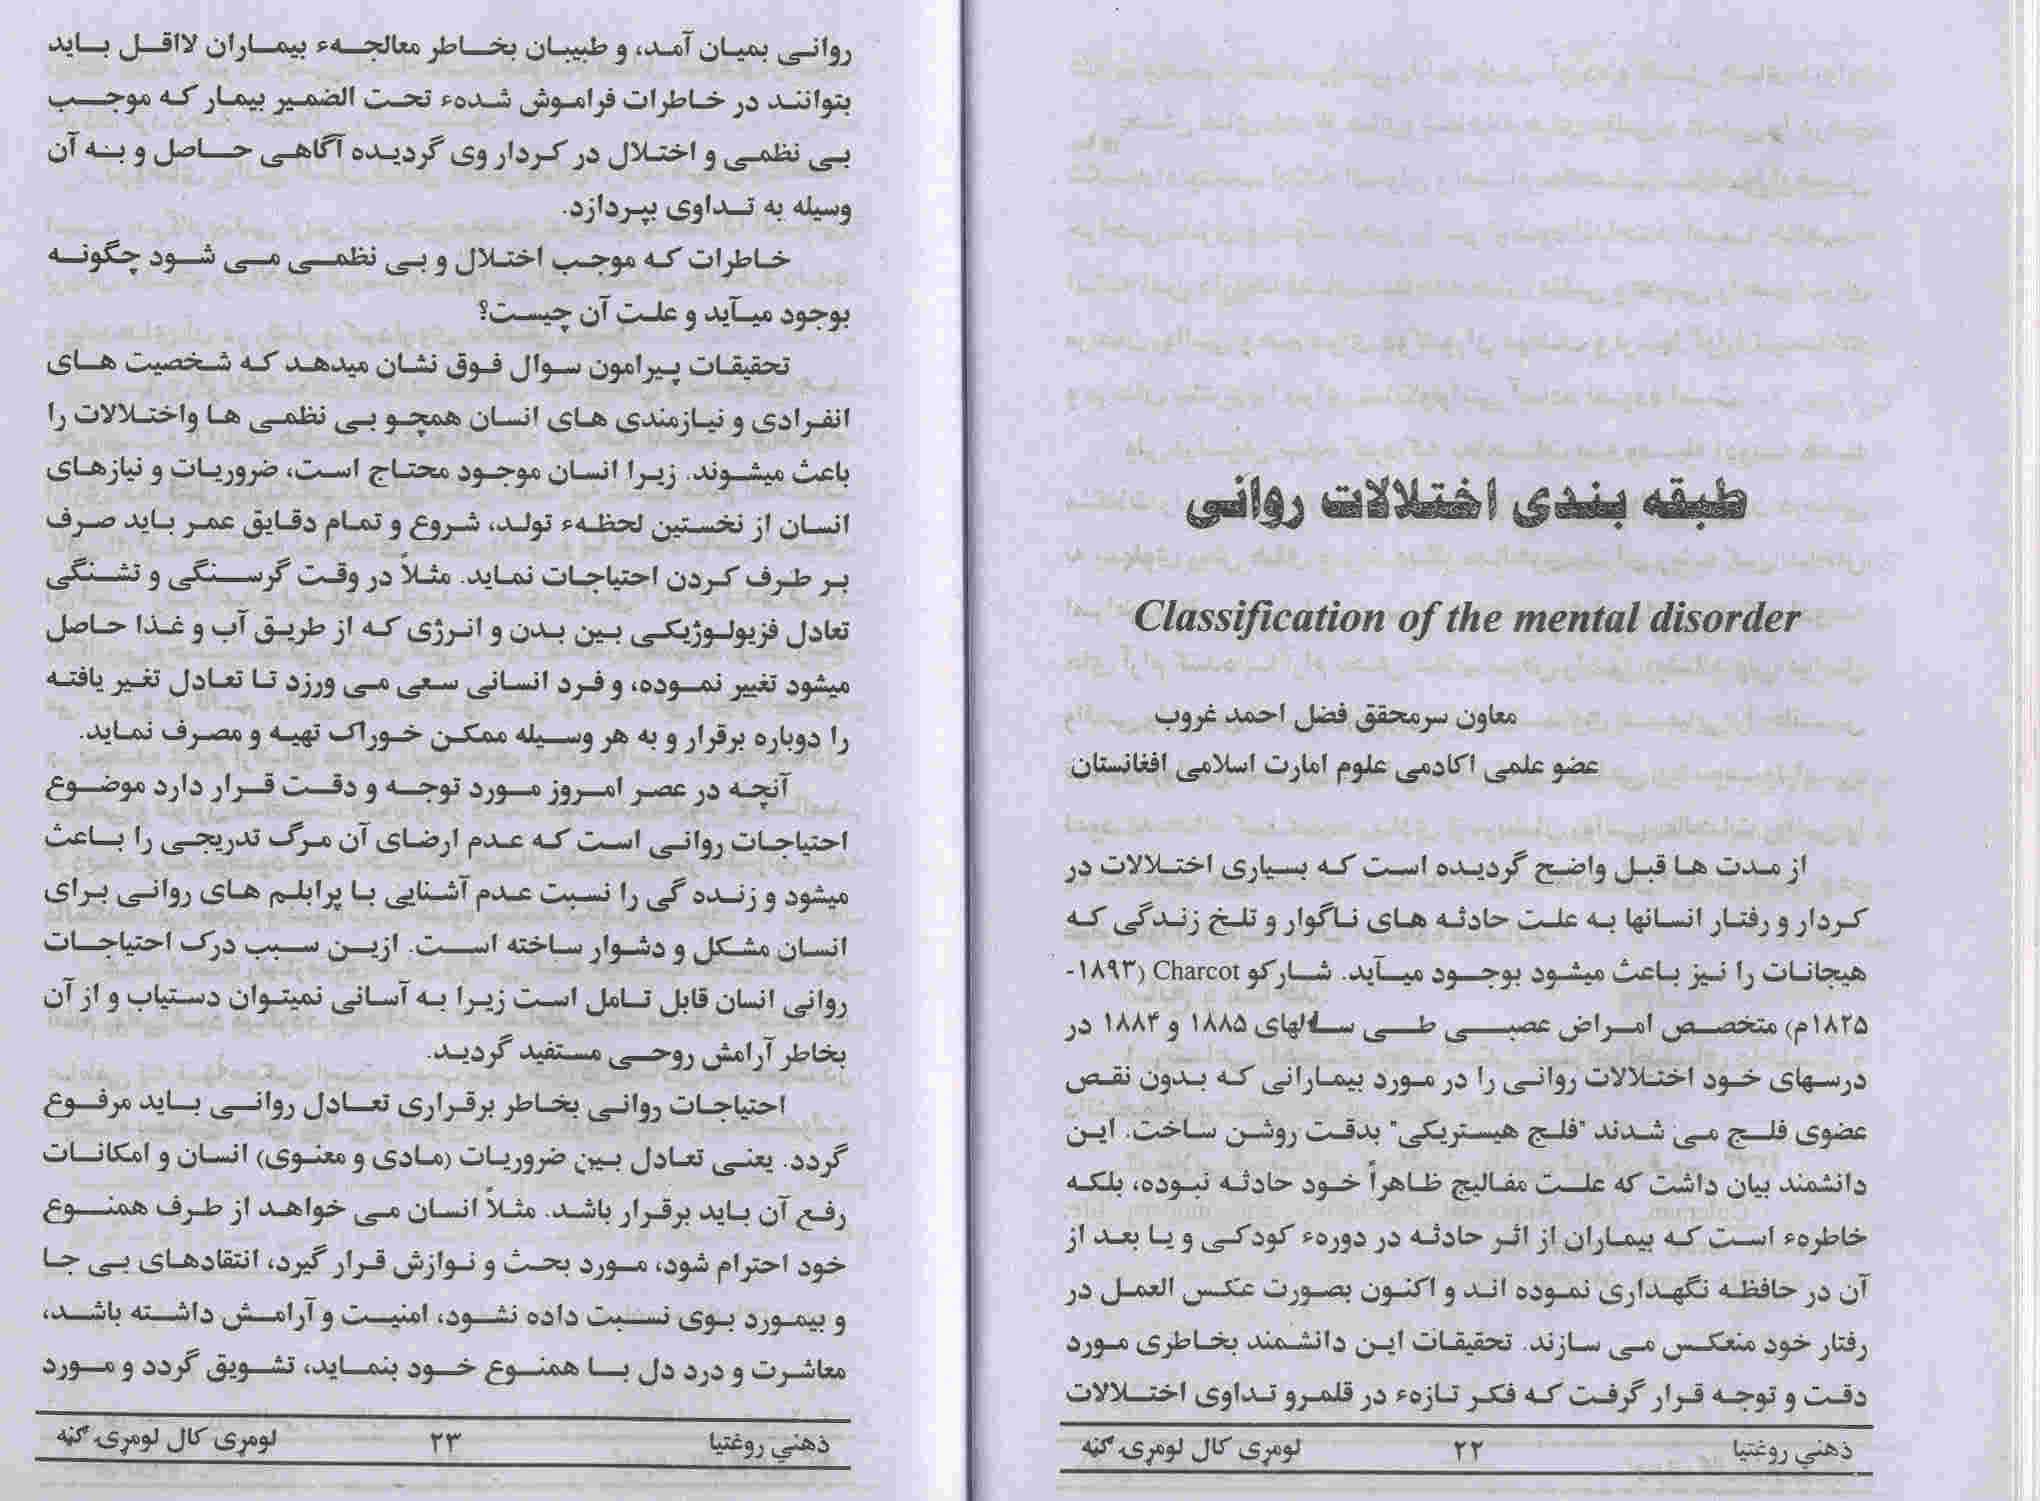 طبقه بندی اختلالات روانی
Classification of the mental disorder
معاون سرمحقق فضل احمد غروب
عضو علمی اکادمی علوم امارت اسلامی افغانستان
از مدت ها قبل واضح گردیده است که بسیاری اختلالات در
کردار و رفتار انسانها به علت حادثه های ناگوار و تلخ زندگی که
هیجانات را نیز باعث میشود بوجود میآید. شارکو Charcot (۱۸۹۳-
۱۸۲۵م) متخصص امراض عصبی طی سالهای ۱۸۸۵ و ۱۸۸۴ در
درسهای خود اختلالات روانی را در مورد بیمارانی که بدون نقص
عضوی فلج می شدند "فلج هیستریکی" بدقت روشن ساخت. این
دانشمند بیان داشت که علت مفالیج ظاهراً خود حادثه نبوده، بلکه
خاطرهء است که بیماران از اثر حادثه در دورهء کودکی و یا بعد از
آن در حافظه نگهداری نموده اند و اکنون بصورت عکس العمل در
رفتار خود منعکس می سازند. تحقیقات این دانشمند بخاطری مورد
دقت و توجه قرار گرفت که فکر تازهء در قلمرو تداوی اختلالات
ذهني روغتیا ۲۲ لومړی کال لومړۍ ګڼه
روانی بمیان آمد، و طبیبان بخاطر معالجهء بیماران لااقل باید
بتوانند در خاطرات فراموش شدهء تحت الضمیر بیمار که موجب
بی نظمی و اختلال در کردار وی گردیده آگاهی حاصل و بنه آن
وسیله به تداوی بپردازد.
خاطرات که موجب اختلال و بی نظمی می شود چگونه
بوجود میآید و علت آن چیست؟
تحقیقات پیرامون سوال فوق نشان میدهد که شخصیت های
انفرادی و نیازمندی های انسان همچو بی نظمی ها واختلالات را
باعث میشوند. زیرا انسان موجود محتاج است، ضروریات و نیازهای
انسان از نخستین لحظهء تولد، شروع و تمام دقایق عمر باید صرف
بر طرف کردن احتیاجات نماید. مثلاً در وقت گرسنگی و تشنگی
تعادل فزیولوژیکی بین بدن و انرژی که از طریق آب و غذا حاصل
میشود تغییر نموده، و فرد انسانی سعی می ورزد تا تعادل تغیر یافته
را دوباره برقرار و به هر وسیله ممکن خوراک تهیه و مصرف نماید.
آنچه در عصر امروز مورد توجه و دقت قرار دارد موضوع
احتیاجات روانی است که عدم ارضای آن مرگ تدریجی را باعث
میشود و زنده گی را نسبت عدم آشنایی با پرابلم های روانی برای
انسان مشکل و دشوار ساخته است. ازین سبب درک احتیاجات
روانی انسان قابل تامل است زیرا به آسانی نمیتوان دستیاب و از آن
بخاطر آرامش روحی مستفید گردید.
احتیاجات روانی بخاطر برقراری تعادل روانی باید مرفوع
گردد. یعنی تعادل بین ضروریات (مادی و معنوی) انسان و امکانات
رفع آن باید برقرار باشد. مثلاً انسان می خواهد از طرف همنوع
خود احترام شود، مورد بحث و نوازش قرار گیرد، انتقادهای بی جا
و بیمورد بوی نسبت داده نشود، امنیت و آرامش داشته باشد،
معاشرت و درد دل با همنوع خود بنماید، تشویق گردد و مورد
ذهني روغتیا ۲۳ لومړی کال لومړۍ ګڼه